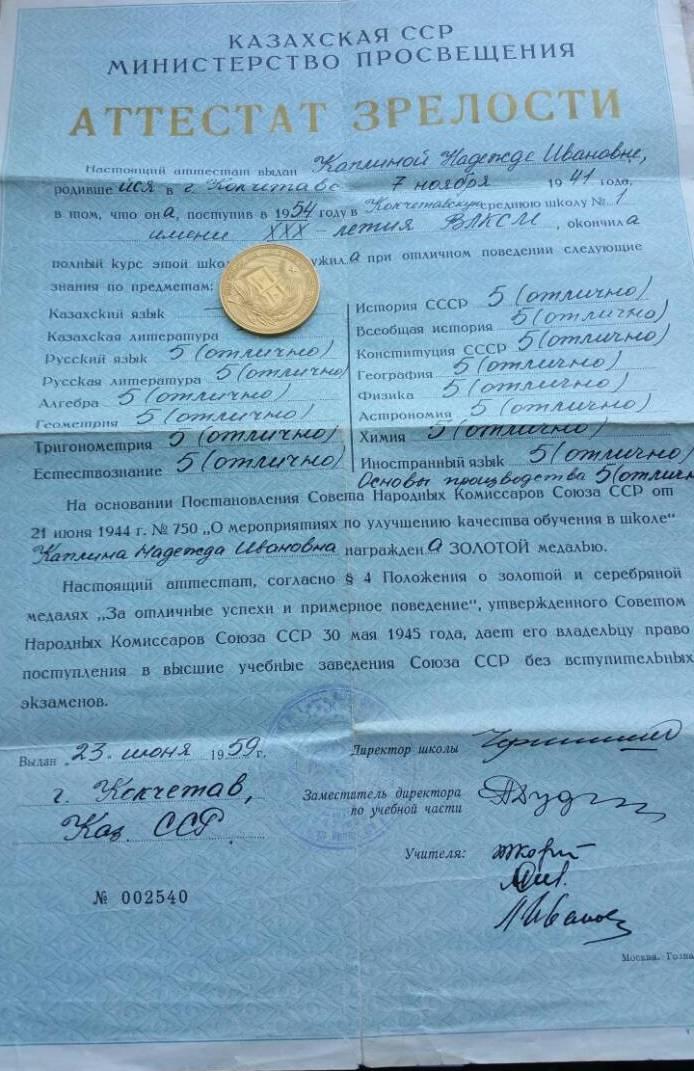 КАЗАХСКАЯ ССР
МИНИСТЕРСТВО ПРОСВЕЩЕНИЯ
АТТЕСТАТ ЗРЕЛОСТИ
Настоящий аттестат выдан Каплиной Надежде Ивановне,
родившейся в г. Кокчетаве 7 ноября 1941 года,
в том, что она, поступив в 1954 году в Кокчетавскую среднюю школу № 1
имени XXX-летия ВЛКСМ, окончила
полный курс этой шко ужила при отличном поведении следующие
знания по предметам:
Казахский язык
Казахская литература
Русский язык 5 (отлично)
Русская литература 5 (отлично)
Алгебра 5 (отлично)
Геометрия 5 (отлично)
Тригонометрия 5 (отлично)
Естествознание 5 (отлично)
История СССР 5 (отлично)
Всеобщая история 5 (отлично)
Конституция СССР 5 (отлично)
География 5 (отлично)
Физика 5 (отлично)
Астрономия 5 (отлично)
Химия 5 (отлично)
Иностранный язык 5 (отлично)
Основы производства 5 (отличн
На основании Постановления Совета Народных Комиссаров Союза ССР от
21 июня 1944 г. № 750 „О мероприятиях по улучшению качества обучения в школе“
Каплина Надежда Ивановна награждена ЗОЛОТОЙ медалью.
Настоящий аттестат, согласно § 4 Положения о золотой и серебряной
медалях „За отличные успехи и примерное поведение“, утвержденного Советом
Народных Комиссаров Союза ССР 30 мая 1945 года, дает его владельцу право
поступления в высшие учебные заведения Союза ССР без вступительных
экзаменов.
Выдан „23„ июня 1959 г.
г. Кокчетав,
Каз. ССР
№ 002540
Директор школы
Заместитель директора
по учебной части
Учителя:
Москва. Гозна